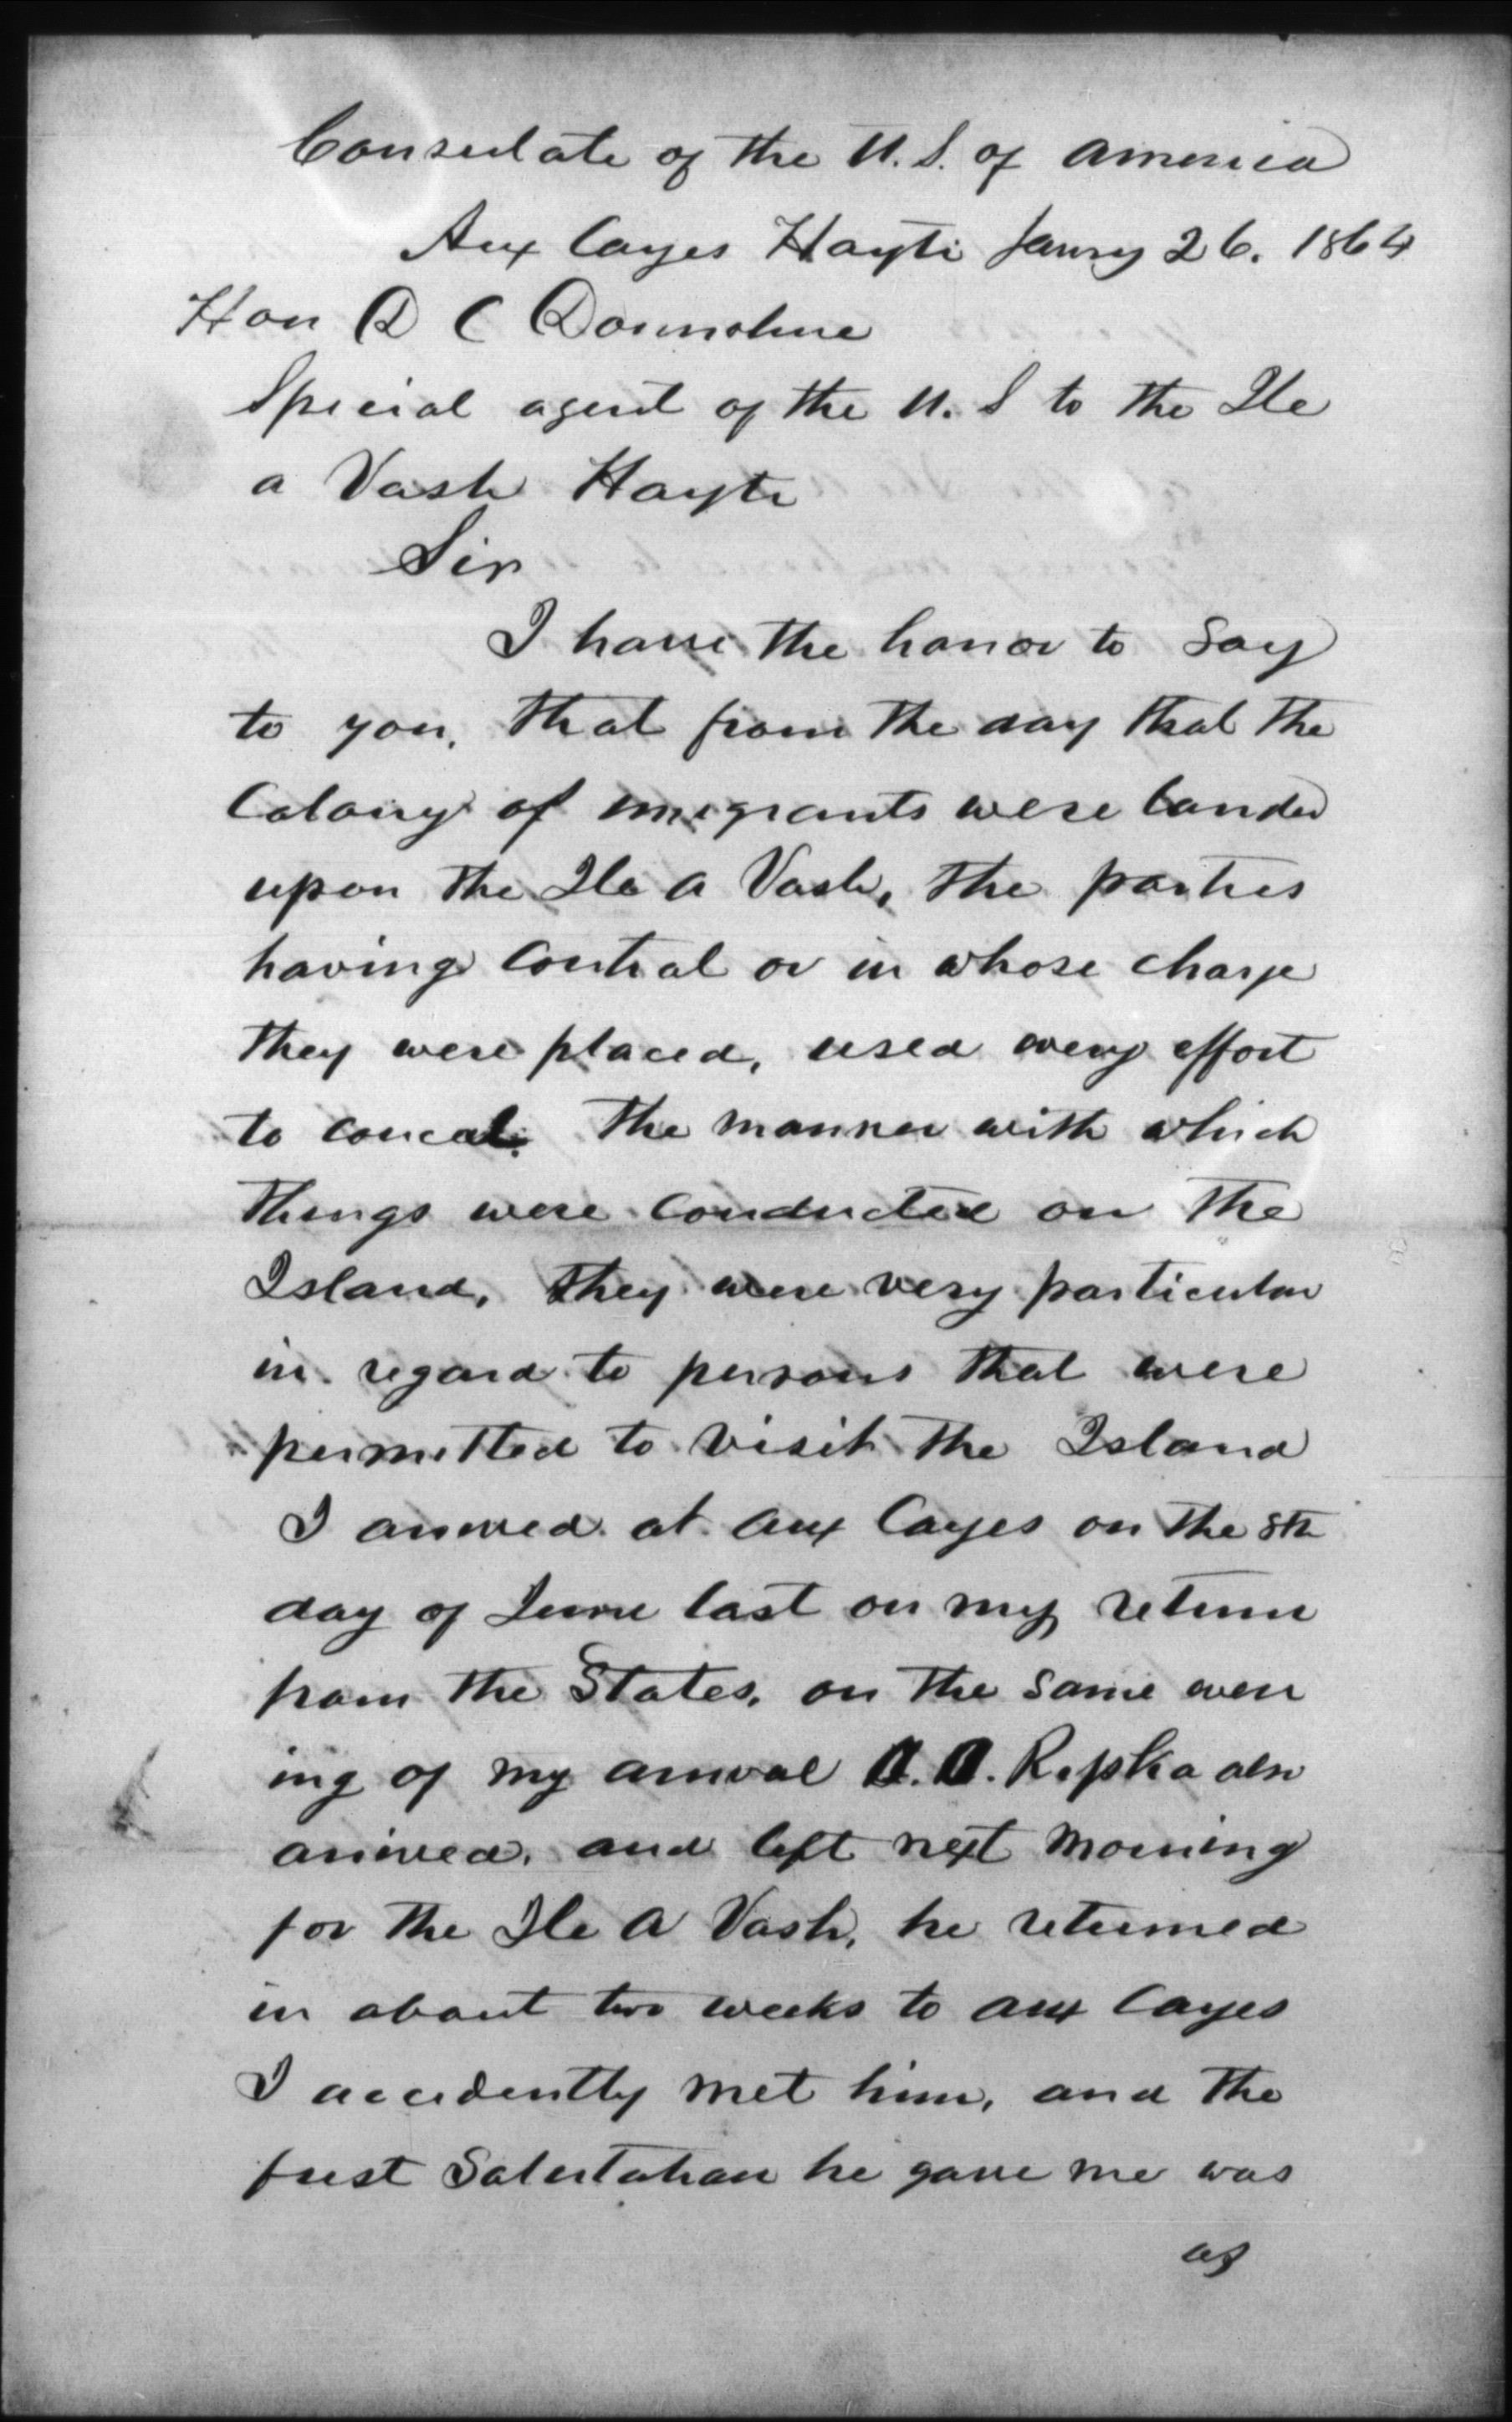 Consulate of the U.S. of America
Aux Cayes Hayti Janry 26. 1864
Hon D C Donnohue
Special agent of the U. S to the Ile
a Vash Hayti
Sir
I have the honor to say
to you, that from the day that the
Colony of emigrants were landed
upon the Ile a Vash, the parties
having control or in whose charge
they were placed, used every effort
to conceal the manner with which
things were conducted on the
Island, they were very particular
in regard to persons that were
permitted to visit the Island
I arrived at Aux Cayes on the 8th
day of June last on my return
from the States, on the same even
ing of my arrival A. A. Ripka also
arrived, and left next morning
for the Ile A Vash, he returned
in about two weeks to Aux Cayes
I accidently met him, and the
first Salutation he gave me was
as